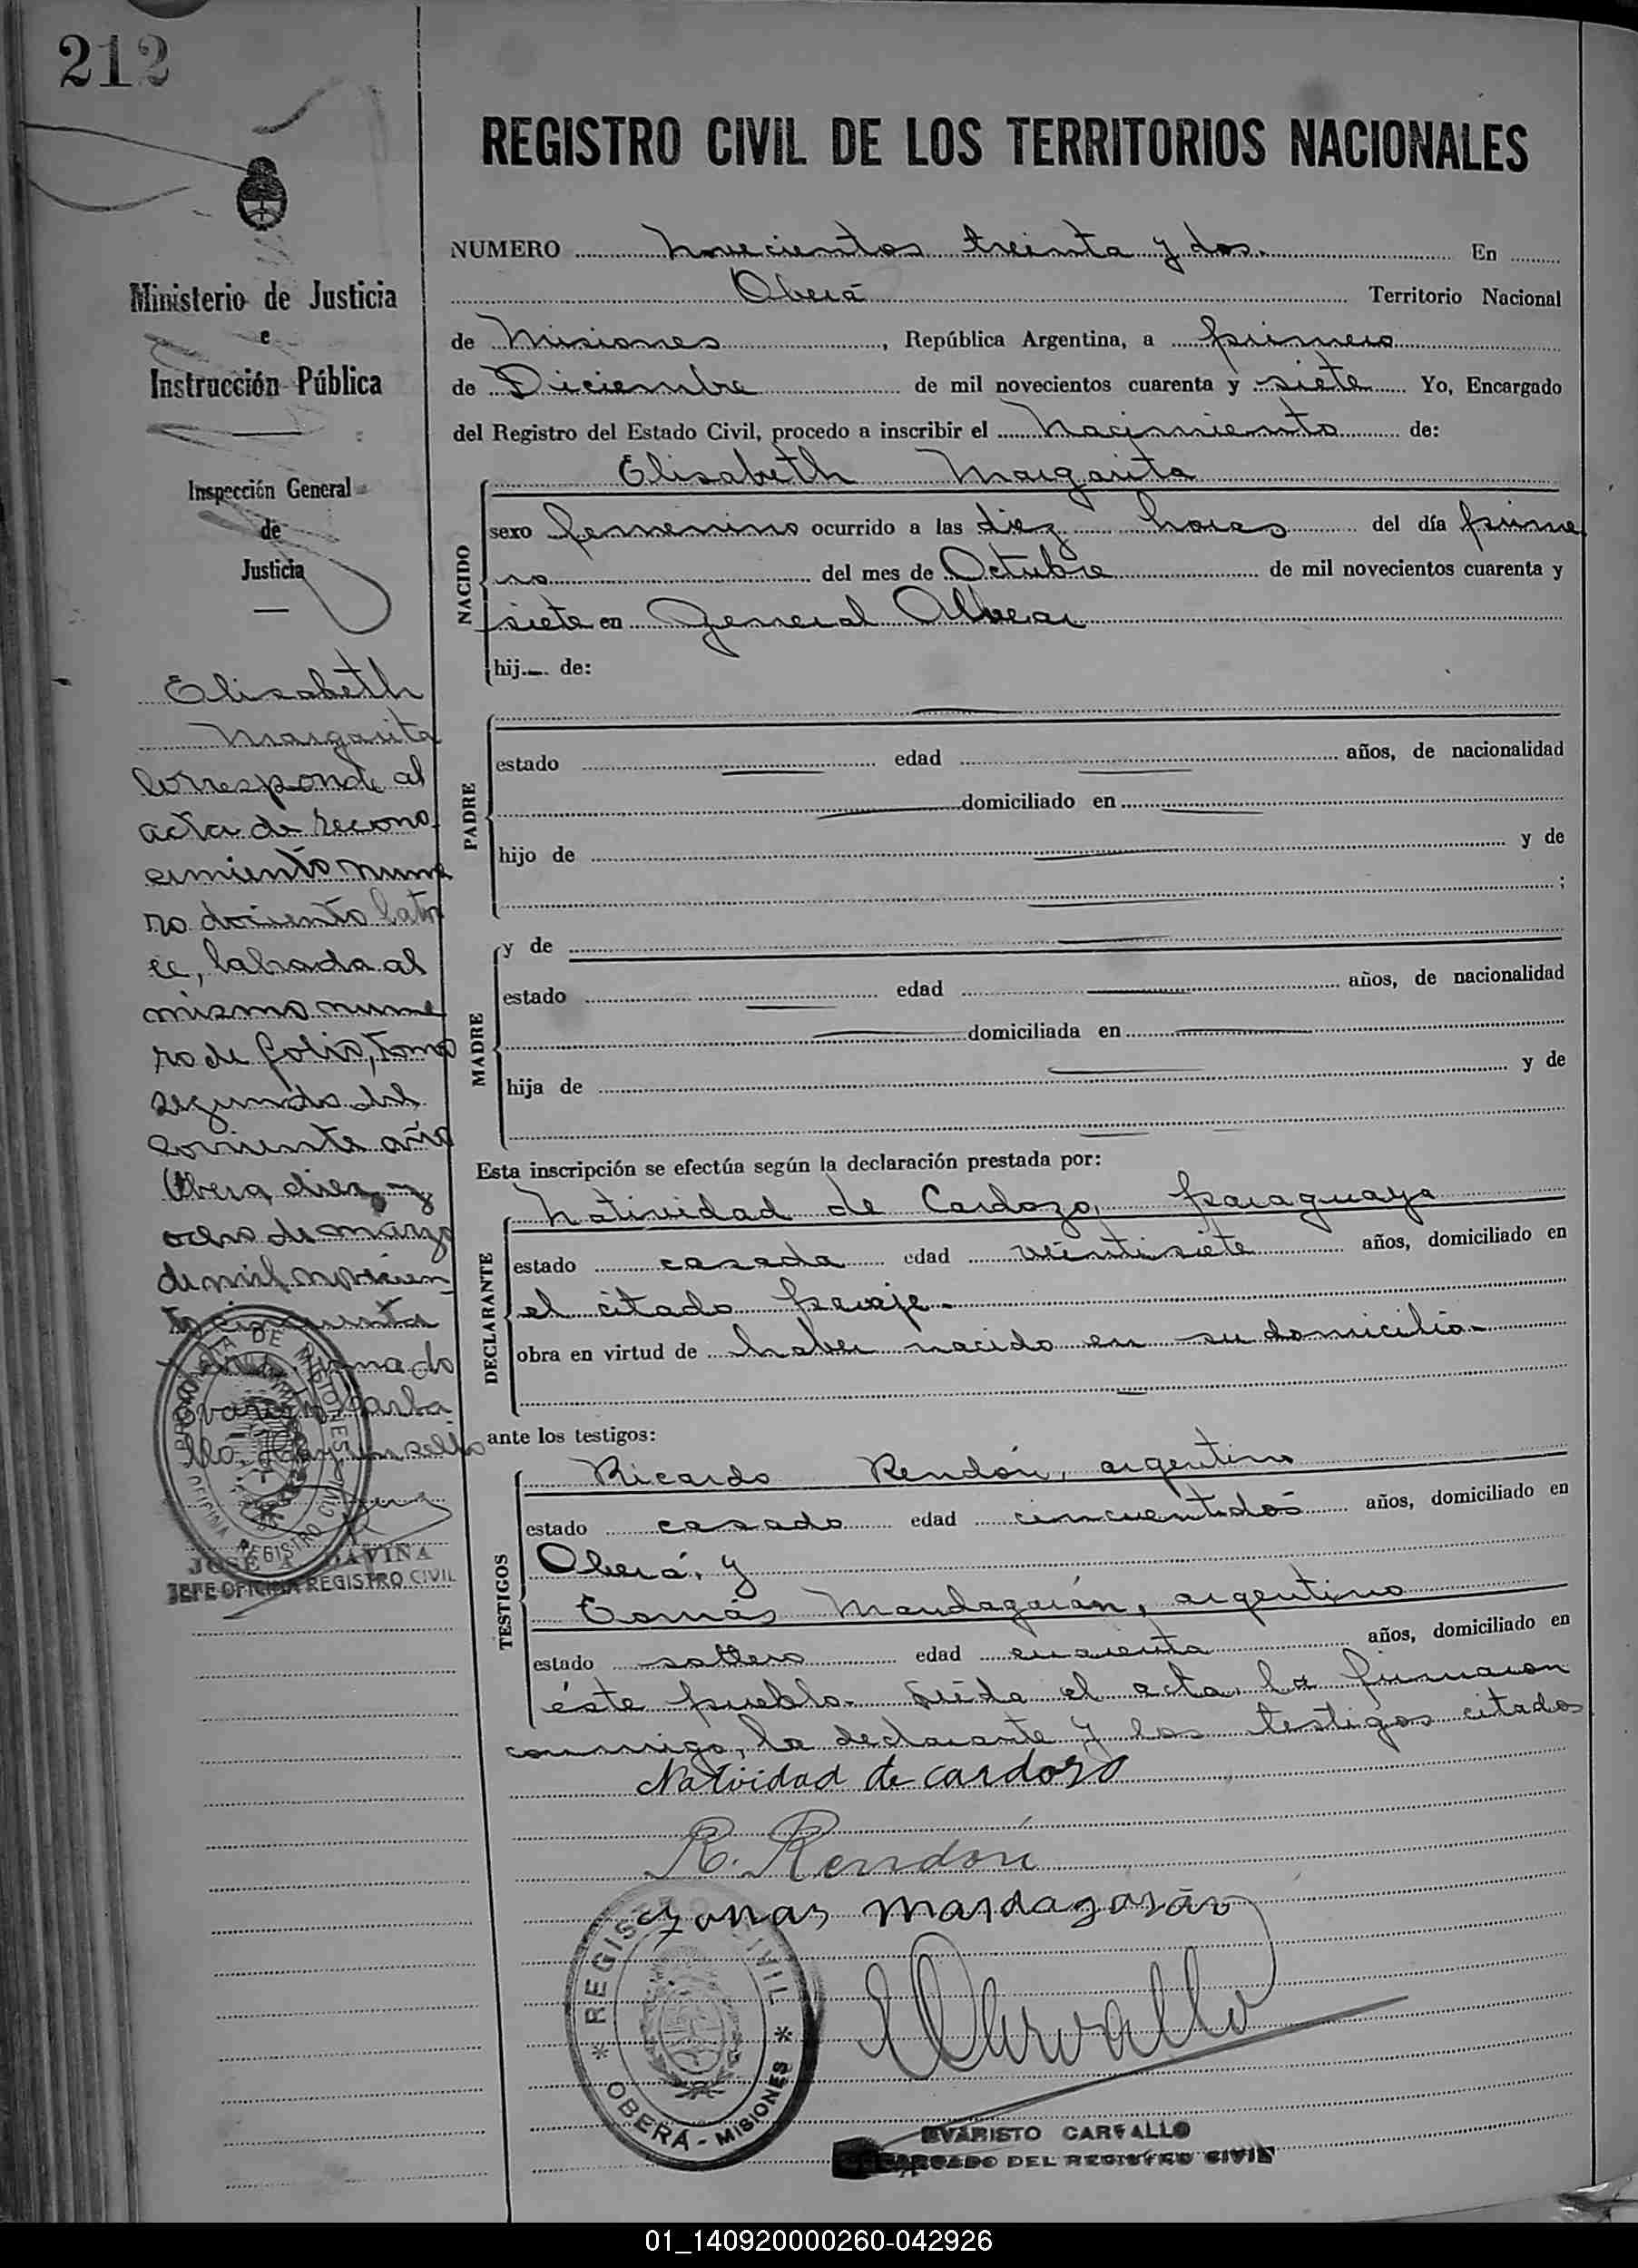 212
REGISTRO CIVIL DE LOS TERRITORIOS NACIONALES
Ministerio de Justicia
e
Instrucción Pública
Inspección General
de
Justicia
NUMERO novecientos treinta y dos. En
Oberá Territorio Nacional
de Misiones, República Argentina, a primero
de Diciembre de mil novecientos cuarenta y siete Yo, Encargado
del Registro del Estado Civil, procedo a inscribir el Nacimiento de:
NACIDO
Elisabeth Margarita
sexo femenino ocurrido a las diez horas del día prime
ro del mes de Octubre de mil novecientos cuarenta y
siete en General Alvear
hij de:
PADRE
estado edad años, de nacionalidad
domiciliado en
hijo de y de
;
MADRE
y de
estado edad años, de nacionalidad
domiciliada en
hija de y de
Esta inscripción se efectúa según la declaración prestada por:
DECLARANTE
Natividad de Cardozo, paraguaya
estado casada edad veintisiete años, domiciliado en
el citado paraje.
obra en virtud de haber nacido en su domicilio.
ante los testigos:
TESTIGOS
Ricardo Rendón, argentino
estado casado edad cincuentidós años, domiciliado en
Oberá, y
Tomás Mandagarán, argentino
estado soltero edad cuarenta años, domiciliado en
éste pueblo. Leída el acta, la firmaron
conmigo, la declarante y los testigos citados
Natividad de cardozo
R. Rendón
Mardagarán
ECarvallo
REGISTRO CIVIL
OBERÁ - MISIONES
EVARISTO CARVALLO
ENCARGADO DEL REGISTRO CIVIL
Elisabeth
Margarita
Corresponde al
acta de recono
cimiento núme
ro dociento cator
ce, labrada al
mismo núme
ro de folio, tomo
segundo del
corriente año
Oberá, diez y
ocho de marzo
de mil novecien
to cincuenta
firmado
Evaristo Carba
llo. Hay un sello
PROVINCIA DE MISIONES
OFICINA REGISTRO CIVIL
JOSE A. DAVIÑA
JEFE OFICINA REGISTRO CIVIL
01_140920000260-042926